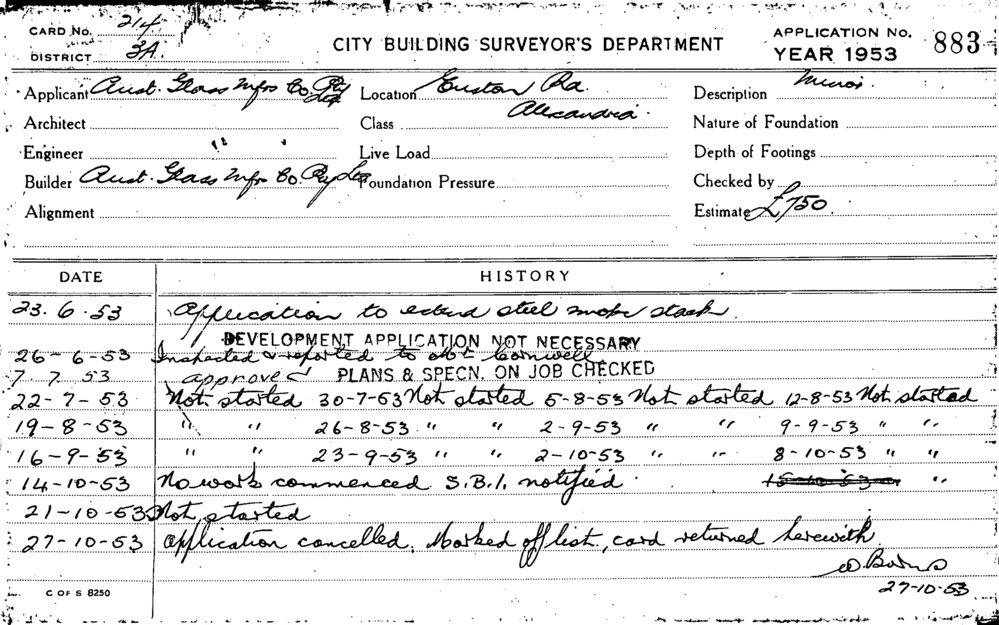 CARD No. 214
DISTRICT 3A.
CITY BUILDING SURVEYOR'S DEPARTMENT
APPLICATION No. 883
YEAR 1953
Applicant Aust. Glass Mfrs Co. Pty Ltd Location Euston Rd. Description Minor
Architect Class Alexandria. Nature of Foundation
Engineer " " Live Load Depth of Footings
Builder Aust. Glass Mfrs Co. Pty Ltd Foundation Pressure Checked by
Alignment Estimate £750.
DATE HISTORY
23.6.53 Application to extend steel smoke stack.
DEVELOPMENT APPLICATION NOT NECESSARY
26-6-53 Inspected & reported to
7.7.53 approved PLANS & SPECN. ON JOB CHECKED
22-7-53 Not started 30-7-53 Not started 5-8-53 Not started 12-8-53 Not started
19-8-53 " " 26-8-53 " " 2-9-53 " " 9-9-53 " "
16-9-53 " " 23-9-53 " " 2-10-53 " " 8-10-53 " "
14-10-53 No work commenced S.B.I. notified 15-10-53 "
21-10-53 Not started
27-10-53 Application cancelled. Marked off list, card returned herewith
27-10-53
C OF S 8250